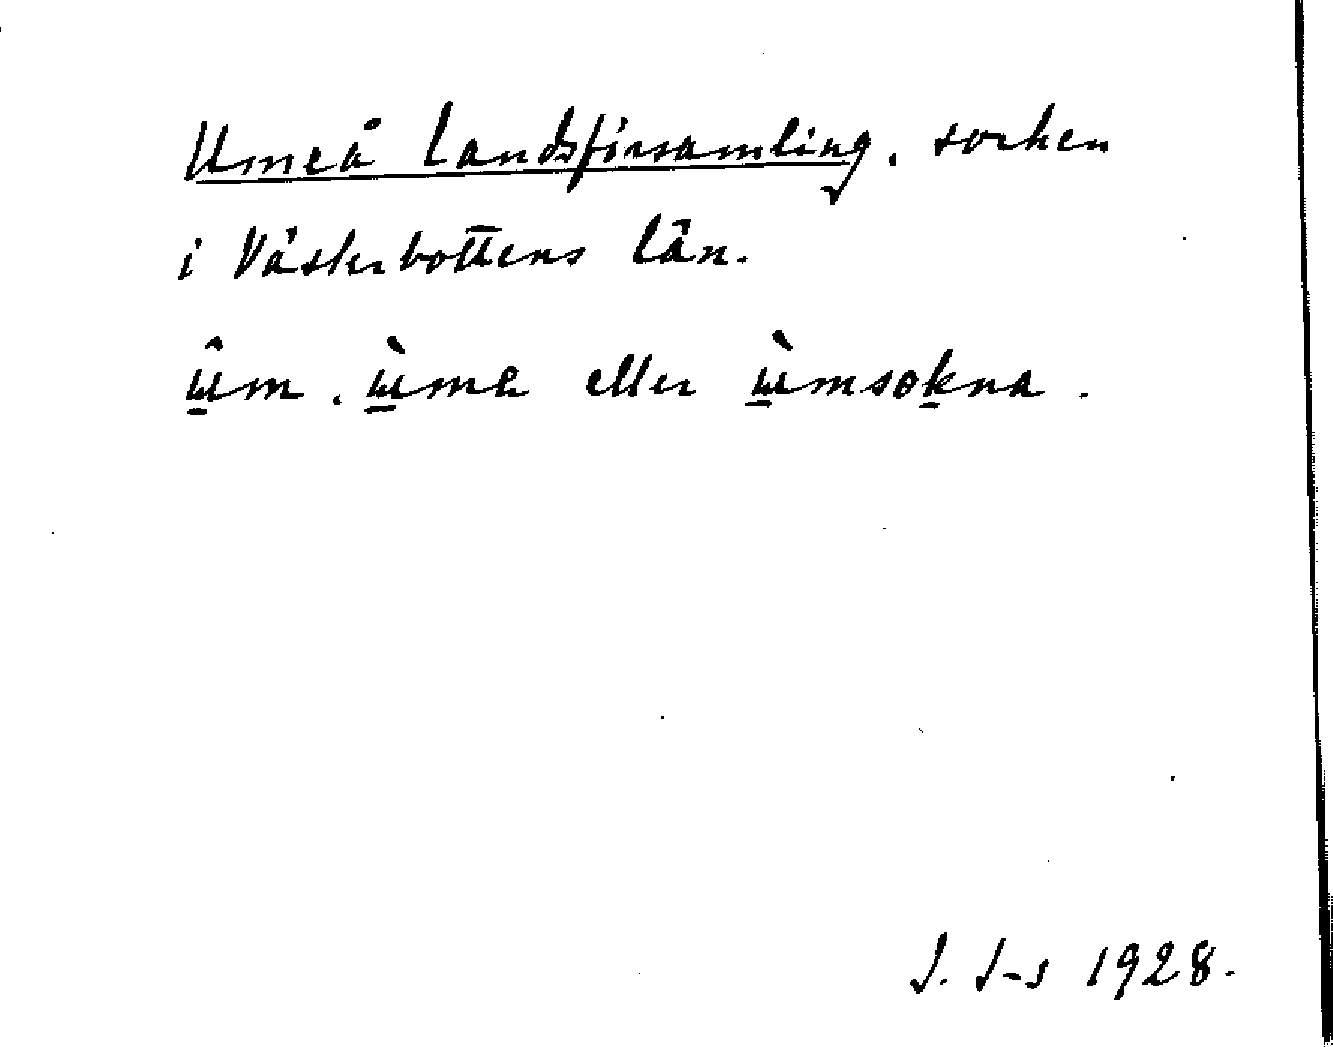 Umeå landsförsamling, socken
i Västerbottens län.
ûm, ùma eller ùmsokna.
J. J-s 1928.